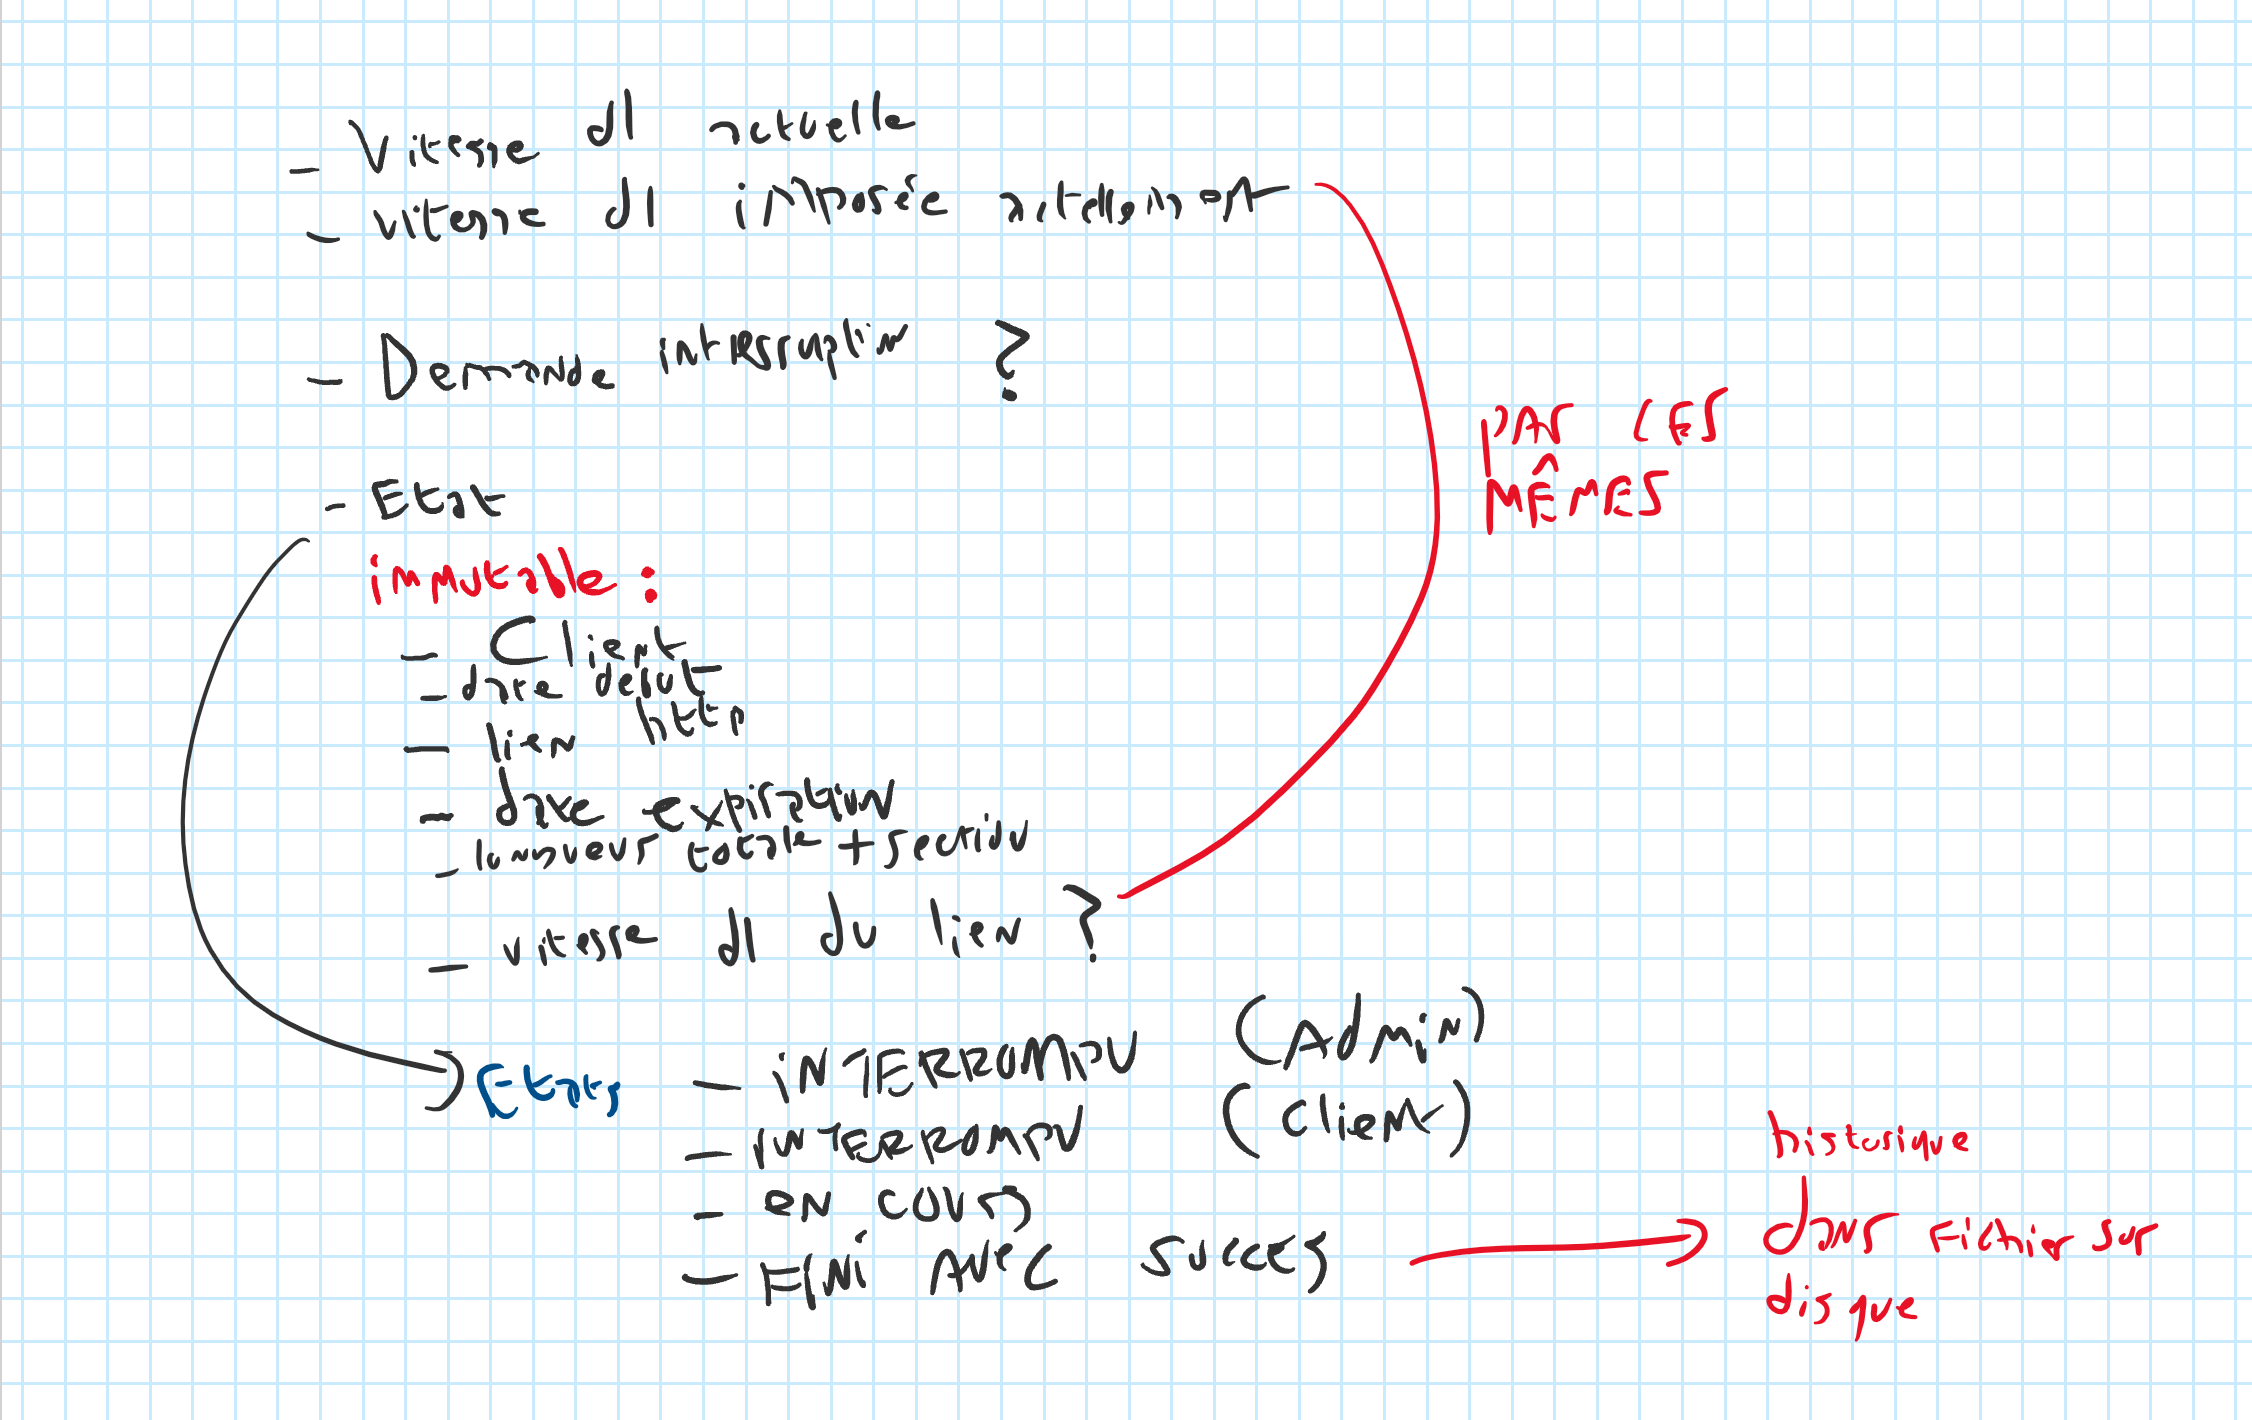 - Vitesse dl actuelle
- vitesse dl imposée actellement
- Demande interruption ?
PAS LES
MÊMES
- Etat
immutable :
- Client
- date debut
- lien http
- date expiration
- longueur totale + section
- vitesse dl du lien ?
Etats - INTERROMPU (Admin)
- INTERROMPU (client)
- EN COURS
- FINI AVEC SUCCES
historique
dans fichier sur
disque